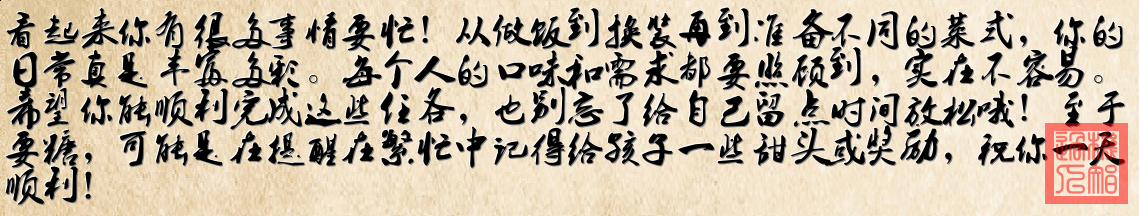 看起来你有很多事情要忙！从做饭到换装再到准备不同的菜式，你的
日常真是丰富多彩。每个人的口味和需求都要照顾到，实在不容易。
希望你能顺利完成这些任务，也别忘了给自己留点时间放松哦！至于
要糖，可能是在提醒在繁忙中记得给孩子一些甜头或奖励，祝你一天
顺利！